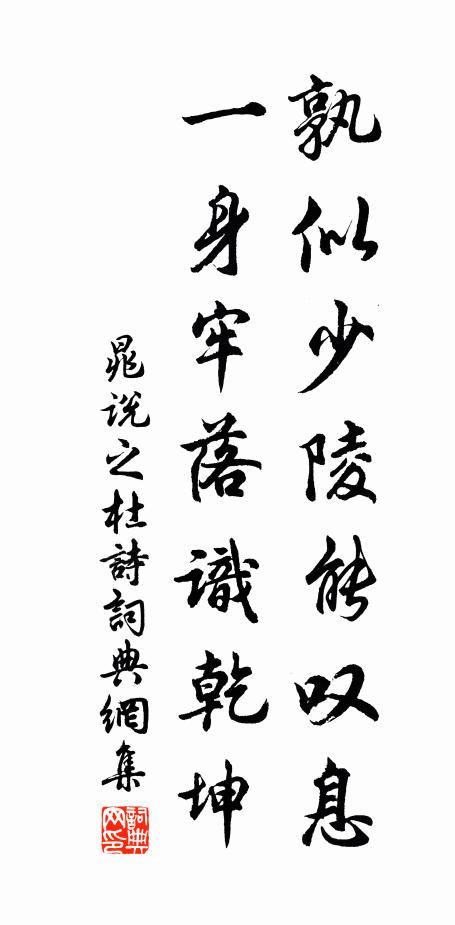 孰似少陵能叹息
一身牢落識乾坤
晁说之杜詩詞典網集
詞典网印